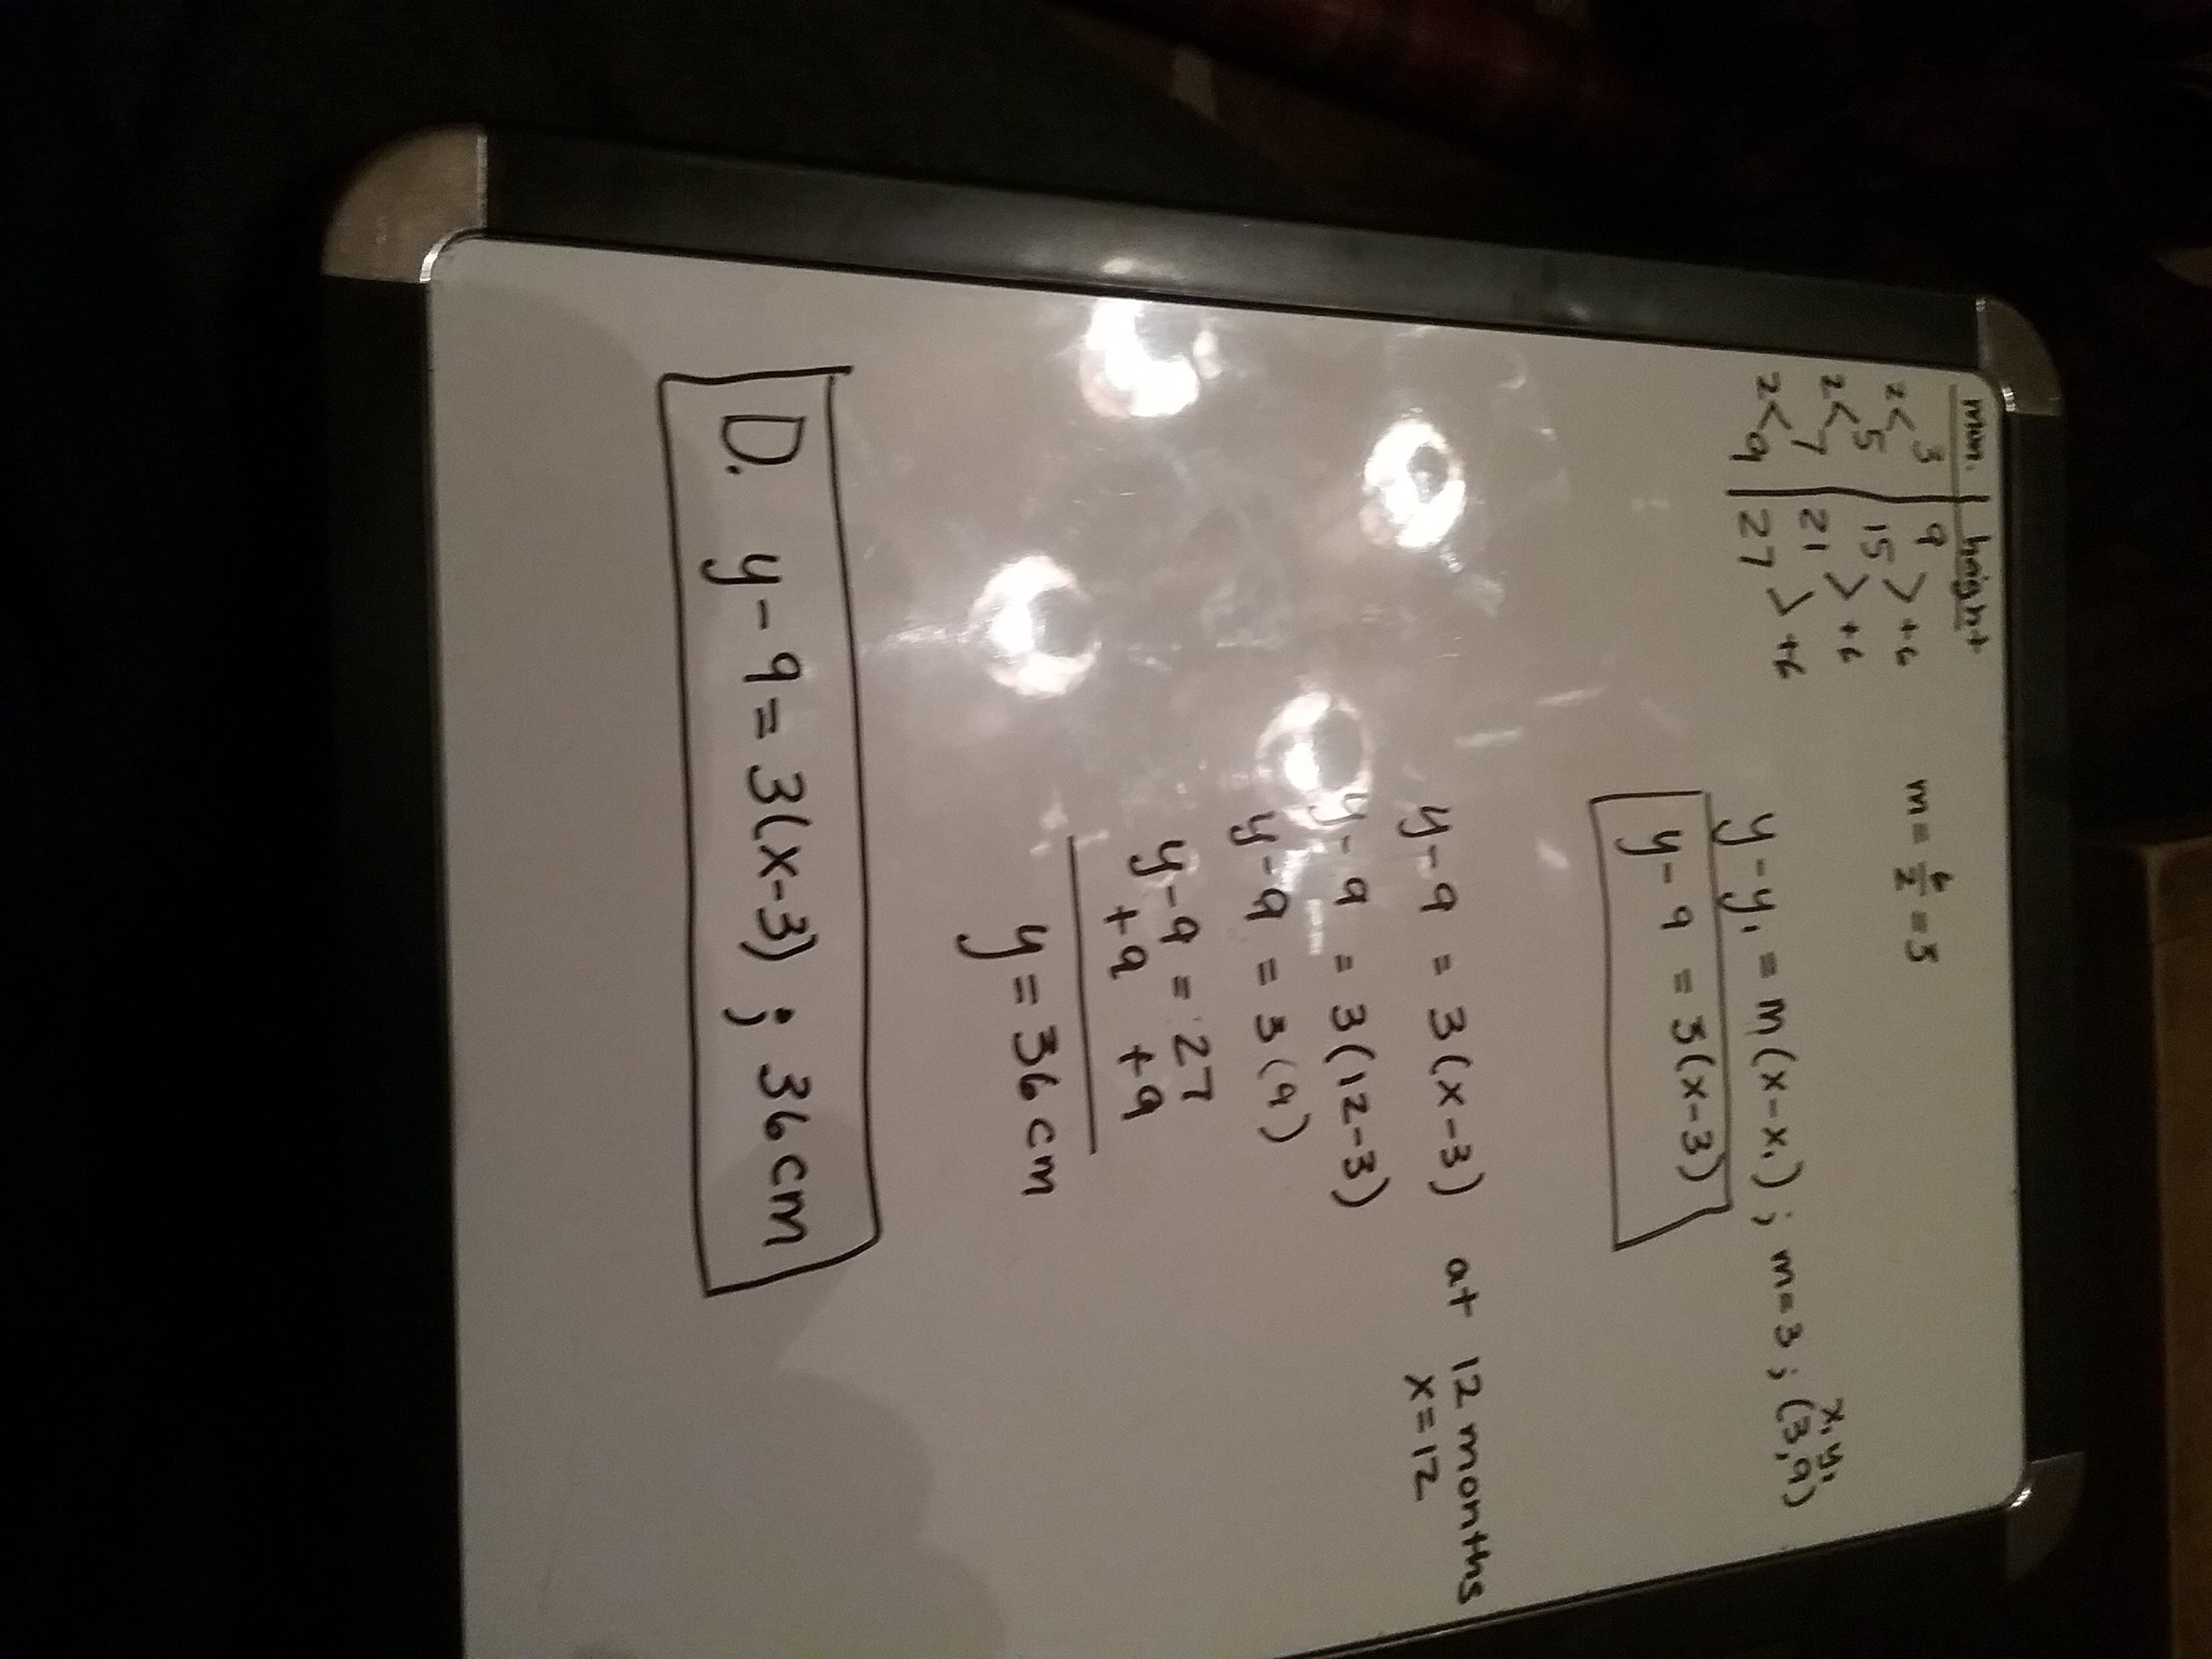 mon. | height
2< 3 | 9 > +6
2< 5 | 15 > +6
2< 7 | 21 > +6
9 | 27
m = 6/2 = 3
x₁ y₁
y - y₁ = m(x - x₁) ; m = 3 ; (3, 9)
y - 9 = 3(x-3)
y - 9 = 3(x-3) at 12 months
x = 12
y - 9 = 3(12-3)
y - 9 = 3(9)
y - 9 = 27
+9 +9
y = 36 cm
D. y - 9 = 3(x-3) ; 36 cm